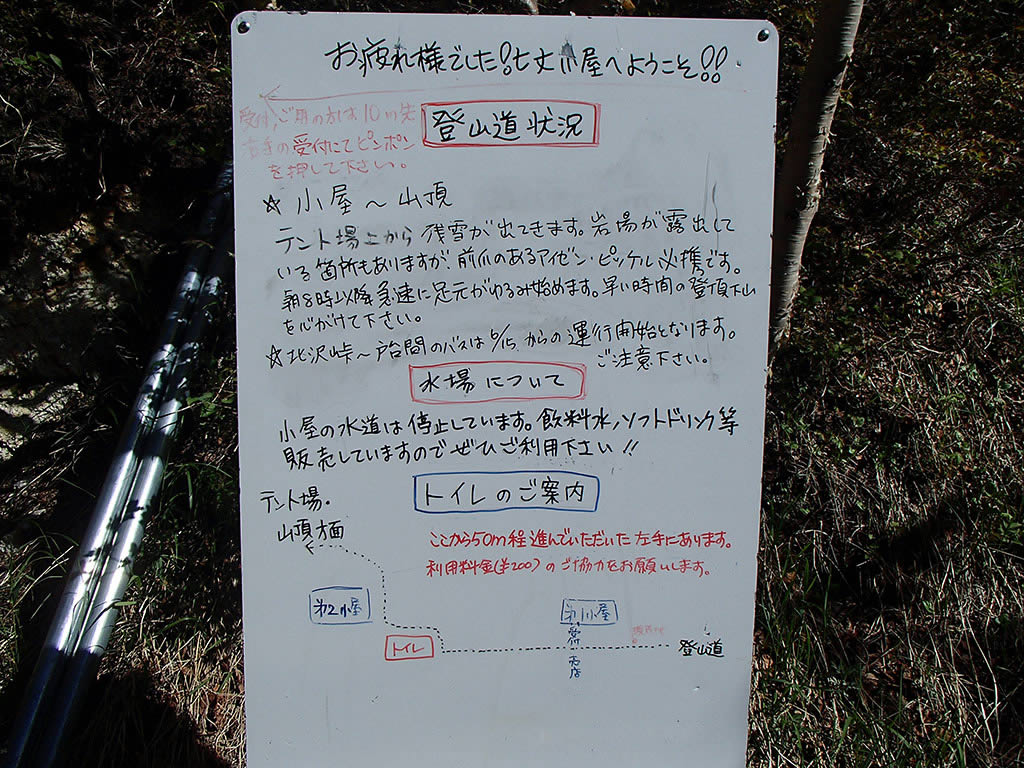 お疲れ様でした!七丈小屋へようこそ!!
受付、ご用の方は10m先
右手の受付にてピンポン
を押して下さい。
登山道状況
☆小屋～山頂
テント場上から残雪が出てきます。岩場が露出して
いる箇所もありますが、前爪のあるアイゼン・ピッケル必携です。
朝8時以降急速に足元がゆるみ始めます。早い時間の登頂下山
を心がけて下さい。
☆北沢峠～戸台間のバスは6/15からの運行開始となります。
ご注意下さい。
水場について
小屋の水道は停止しています。飲料水、ソフトドリンク等
販売していますのでぜひご利用下さい!!
トイレのご案内
ここから50m程進んでいただいた左手にあります。
利用料金(¥200)のご協力をお願いします。
テント場・
山頂方面
第2小屋
第1小屋
トイレ
登山道